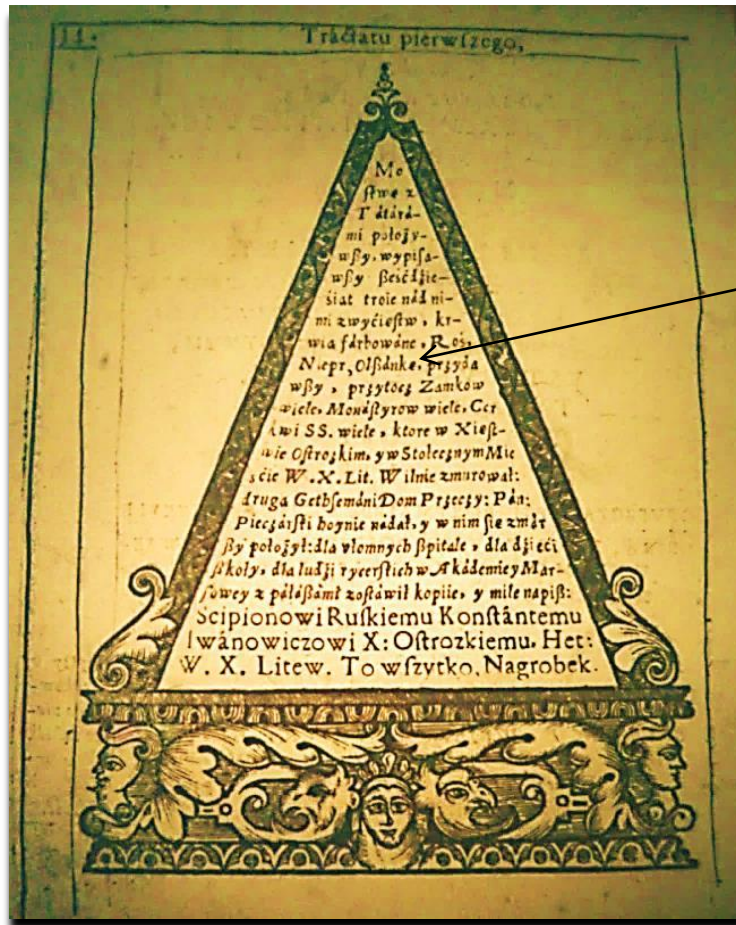 11.
Tráctatu pierwſzego,
Mo
ſtwę z
Tátárá-
mi położy-
wßy, wypiſa-
wßy ßeśćdźie-
śiat troie nád ni-
mi zwyćięſtw, kr-
wią fárbowáne, Roś,
Niepr, Olßánkę, przyda
wßy, przytocz Zamkow
wiele, Monáſtyrow wiele, Cer
kwi SS. wiele, ktore w Xięſt-
wie Oſtrozkim, y w Stołecznym Mie
śćie W. X. Lit. Wilnie zmurował:
druga Gethſemáni Dom Przeczy: Pán:
Pieczárſki hoynie nádał, y w nim ſię zmár
ßy położył: dla vłomnych ßpitale, dla dźieći
ßkoły, dla ludźi rycerſkich w Akádemiey Mar-
ſowey z páłáßámi zoſtáwił kopiie, y mile napiß:
Scipionowi Ruſkiemu Konſtántemu
Iwánowiczowi X: Oſtrozkiemu, Het:
W. X. Litew. To wſzytko, Nagrobek.